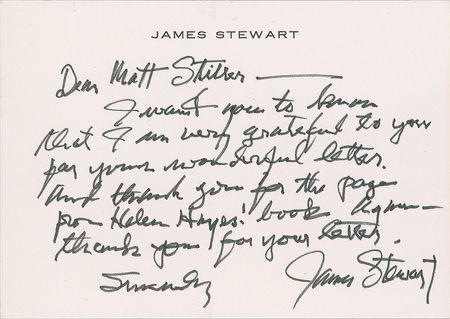 JAMES STEWART
Dear Matt
I want you to know
that I am very grateful to you
for your wonderful letter.
And thank you for the page
from Helen Hayes' book. Again —
thank you for your letter.
Sincerely
James Stewart